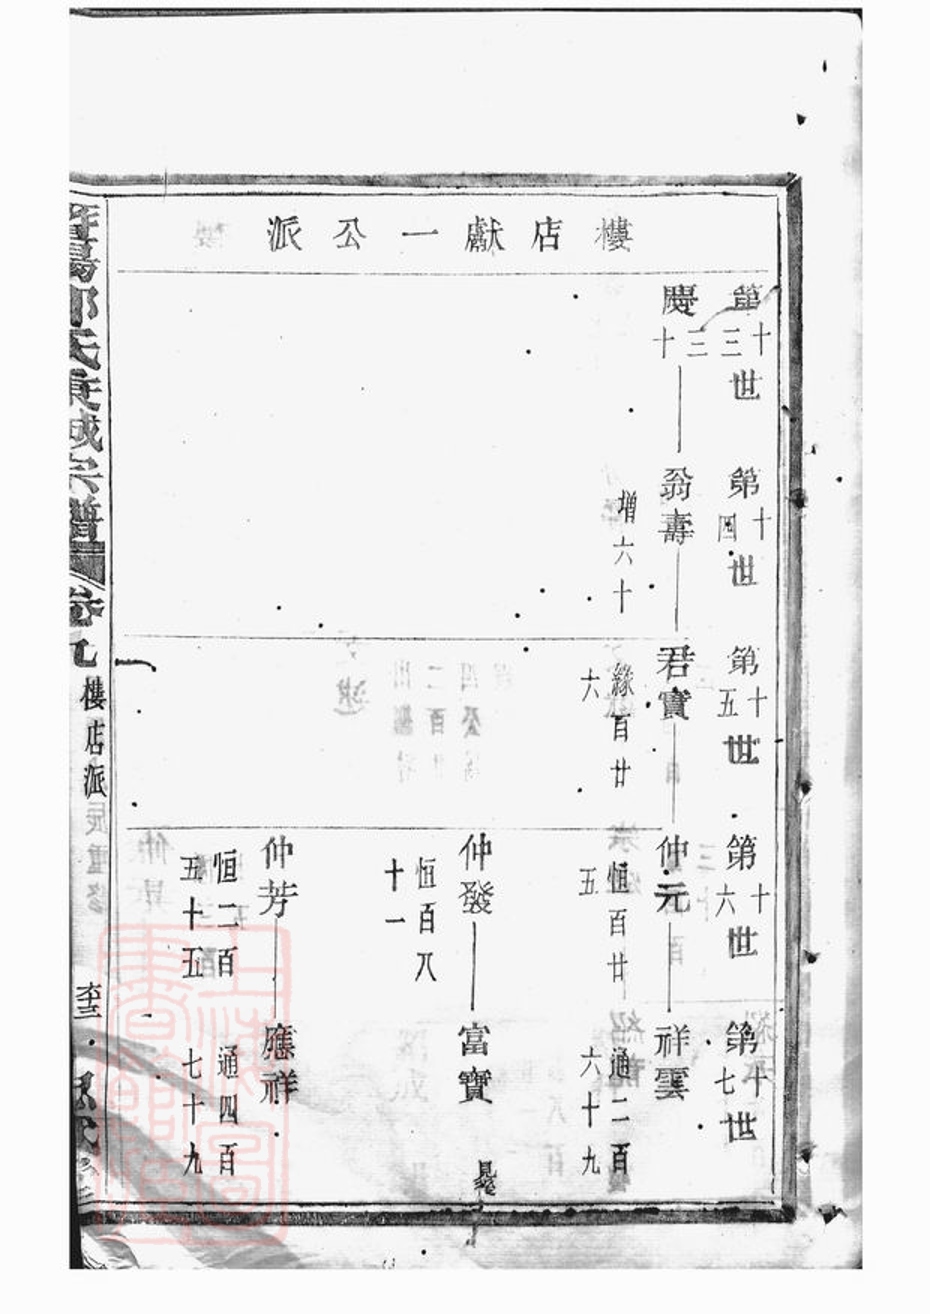 樓店獻一公派
第十三世
第十四世
第十五世
第十六世
第十七世
慶三十
翁壽
增六十
君寶
緣百廿六
仲元
恒百廿五
祥雲
通二百六十九
仲發
恒百八十一
富寶
仲芳
恒二百五十五
應祥
通四百七十九
氏
宗譜
卷九
樓店派